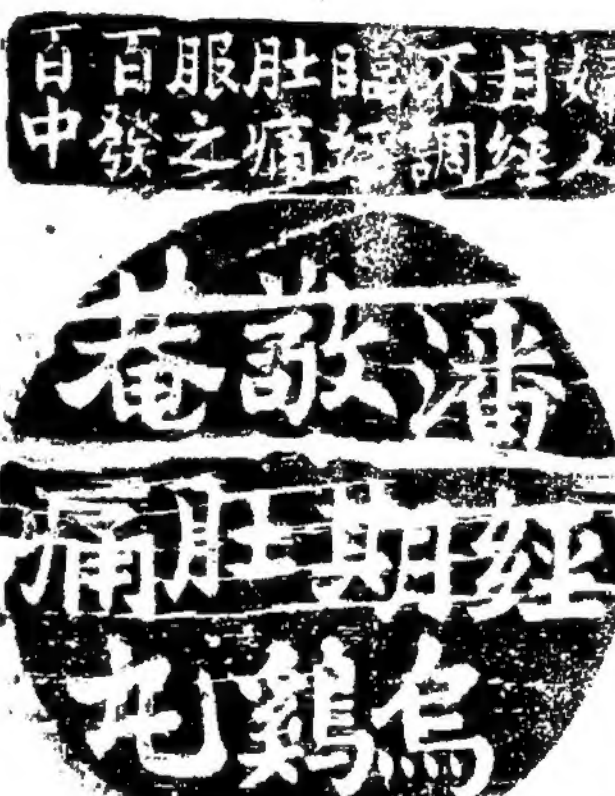 婦人
月經
不調
臨經
肚痛
服之
百發
百中
潘敬菴
經期肚痛
烏鷄丸